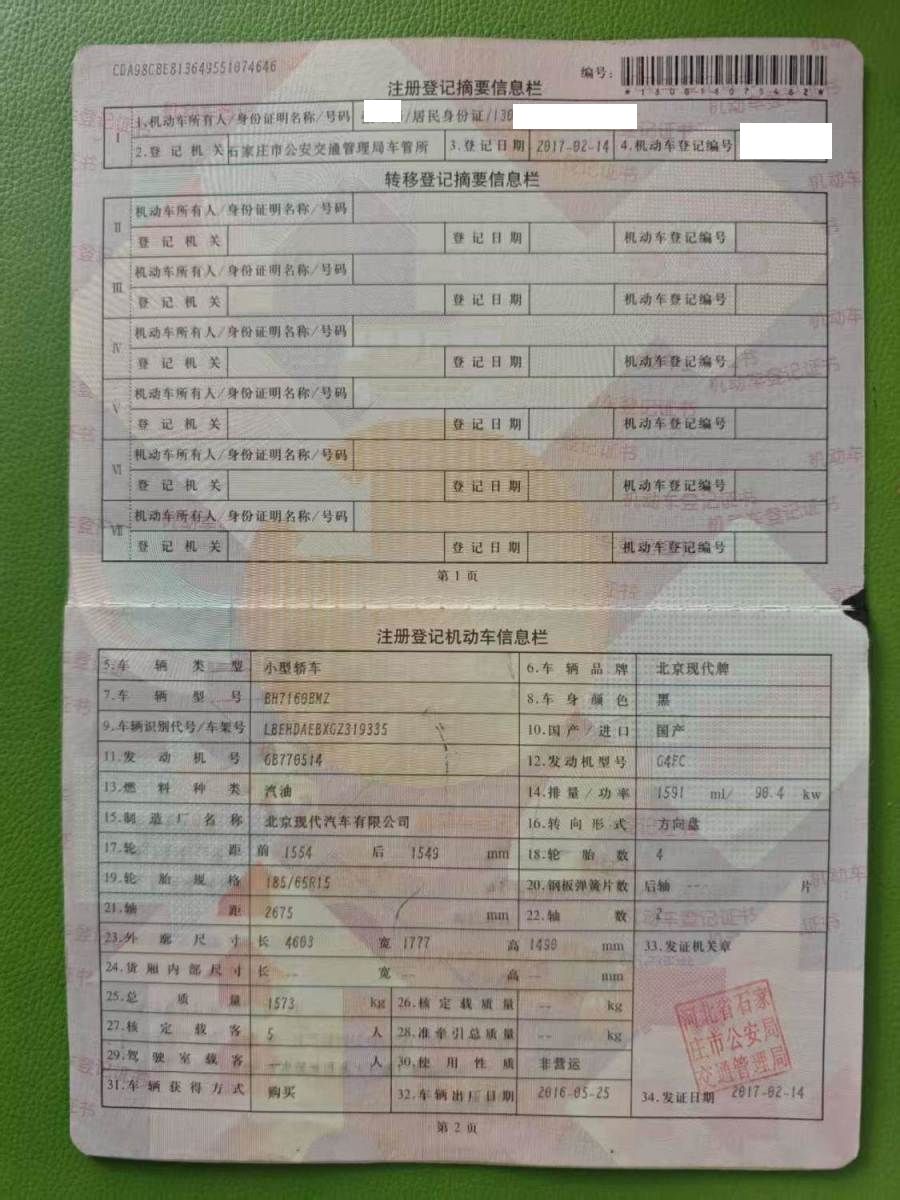 CDA98C8E813649551074646
编号:
注册登记摘要信息栏
*130016075462*
I 1.机动车所有人/身份证明名称/号码 /居民身份证/130
2.登记机关 石家庄市公安交通管理局车管所 3.登记日期 2017-02-14 4.机动车登记编号
转移登记摘要信息栏
II 机动车所有人/身份证明名称/号码
登记机关 登记日期 机动车登记编号
III 机动车所有人/身份证明名称/号码
登记机关 登记日期 机动车登记编号
IV 机动车所有人/身份证明名称/号码
登记机关 登记日期 机动车登记编号
V 机动车所有人/身份证明名称/号码
登记机关 登记日期 机动车登记编号
VI 机动车所有人/身份证明名称/号码
登记机关 登记日期 机动车登记编号
VII 机动车所有人/身份证明名称/号码
登记机关 登记日期 机动车登记编号
第1页
注册登记机动车信息栏
5.车辆类型 小型轿车 6.车辆品牌 北京现代牌
7.车辆型号 BH7160BMZ 8.车身颜色 黑
9.车辆识别代号/车架号 LBEHDAEBXGZ319335 10.国产/进口 国产
11.发动机号 GB770514 12.发动机型号 G4FC
13.燃料种类 汽油 14.排量/功率 1591 ml/ 90.4 kw
15.制造厂名称 北京现代汽车有限公司 16.转向形式 方向盘
17.轮距 前 1554 后 1549 mm 18.轮胎数 4
19.轮胎规格 185/65R15 20.钢板弹簧片数 后轴 --- 片
21.轴距 2675 mm 22.轴数 2
23.外廓尺寸 长 4603 宽 1777 高 1490 mm 33.发证机关章
24.货厢内部尺寸 长 -- 宽 -- 高 -- mm
25.总质量 1573 kg 26.核定载质量 -- kg
27.核定载客 5 人 28.准牵引总质量 -- kg
29.驾驶室载客 -- 人 30.使用性质 非营运
31.车辆获得方式 购买 32.车辆出厂日期 2016-05-25 34.发证日期 2017-02-14
河北省石家
庄市公安局
交通管理局
第2页